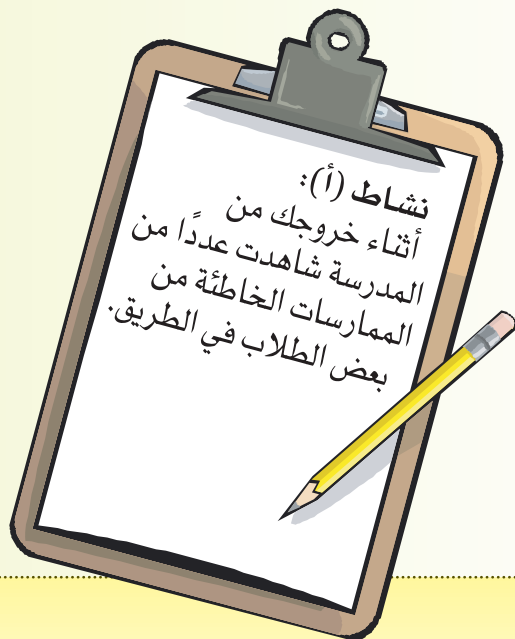 نشاط (أ):
أثناء خروجك من
المدرسة شاهدت عددًا من
الممارسات الخاطئة من
بعض الطلاب في الطريق.